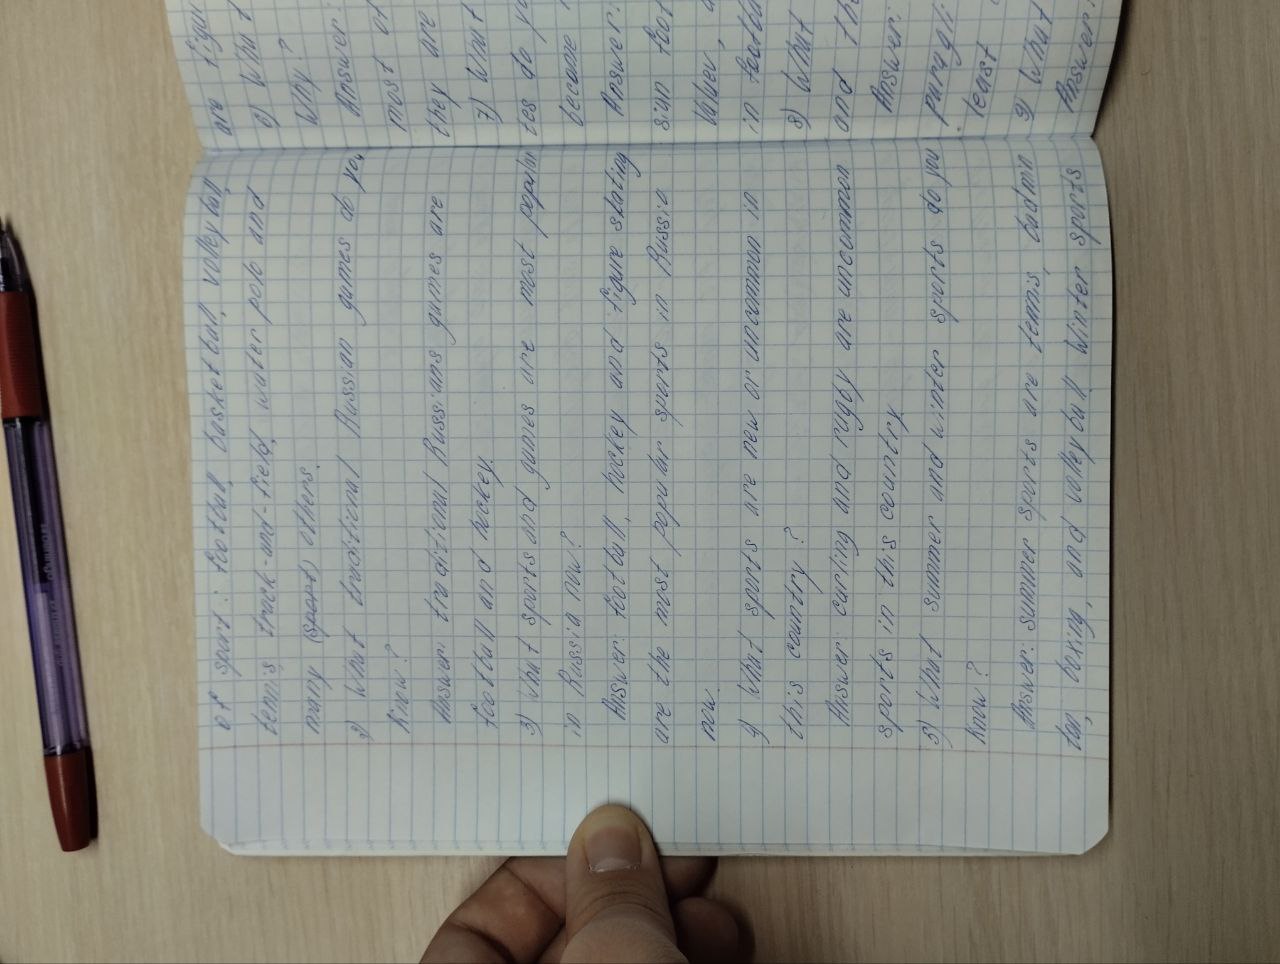 of sport: football, basketball, volleyball,
tennis, track-and-field, water polo and
many (sports) others.
2) What traditional Russian games do you
know?
Answer: traditional Russians games are
football and hockey.
3) What sports and games are most popular
in Russia now?
Answer: football, hockey and figure skating
are the most popular sports in Russia
now.
4) What sports are new or uncommon in
this country?
Answer: curling and rugby are uncommon
sports in this country.
5) What summer and winter sports do you
know?
Answer: summer sports are tennis, badmin
ton, boxing, and volleyball. Winter sports
are figu
6) What
Why?
Answer:
most of
they are
7) What
tes do yo
become
Answer:
sian foot
in footba
8) What
and the
Answer:
least
9) What
Answer: